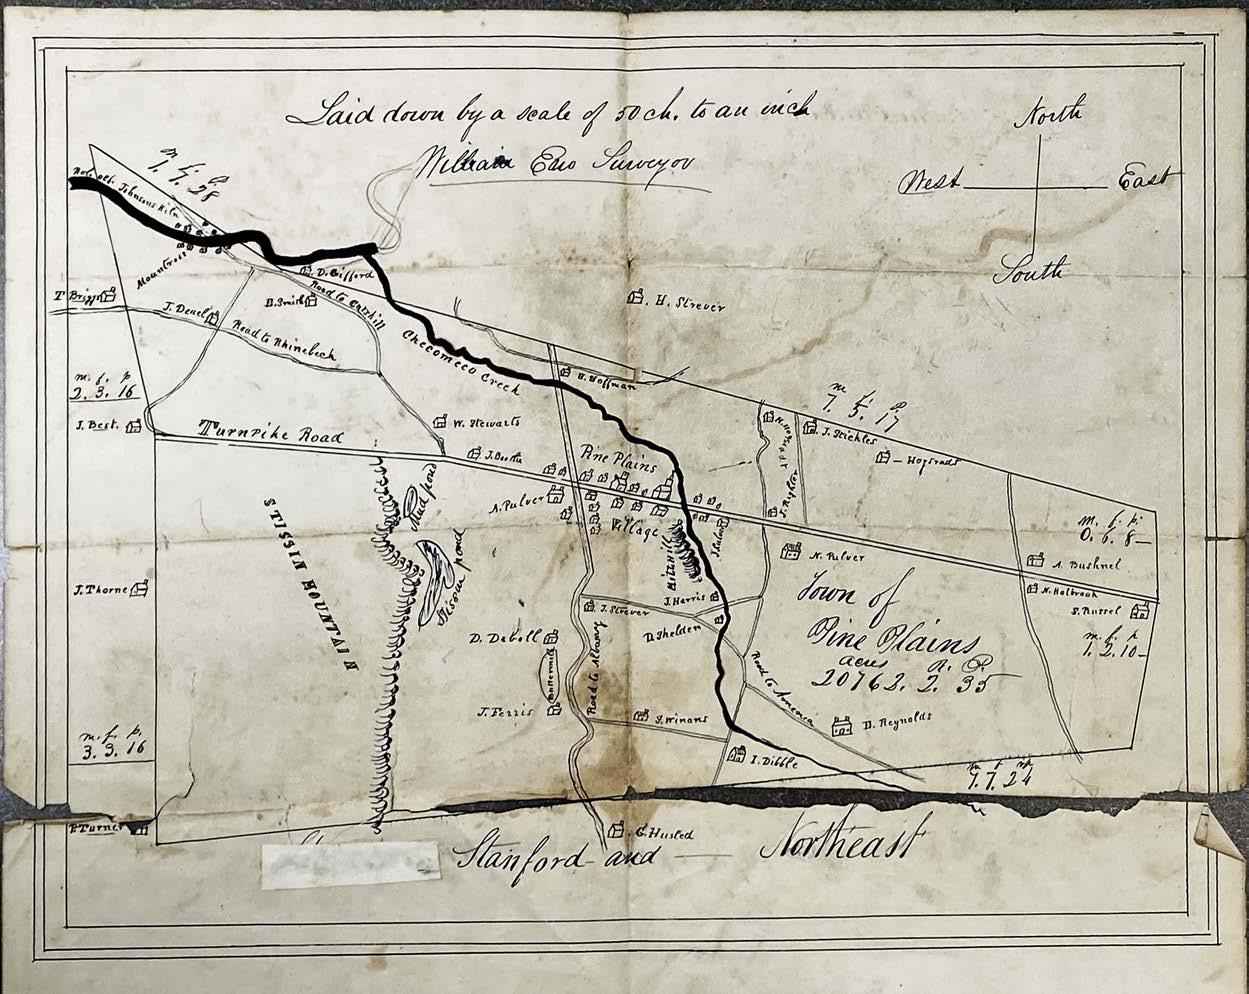 Laid down by a scale of 50 ch. to an inch
William Eno Surveyor
North
West
East
South
m. f. p.
1. 7. 28
Johnsons Kiln
Mountross
D. Gifford
T. Briggs
J. Deuel
B. Smith
Road to Catskill
H. Strever
Road to Rhinebeck
Checomeco Creek
m. f. p
2. 3. 16
H. Hoffman
m. f. p
7. 5. 17
J. Best.
Turnpike Road
W. Stewarts
J. Stickles
Hogsrads
J. Booth
Pine Plains
Village
Mud pond
A. Pulver
J. Righter
m. f. p.
0. 6. 8
STISSIN MOUNTAIN
Mill Hill
N. Pulver
A. Bushnel
J. Thorne
Stissin pond
J. Harris
N. Holbrook
S. Russel
J. Strever
D. Sheldon
Town of
Pine Plains
acres R. P.
20762. 2. 35
m. f. p
1. 2. 10
D. Deboll
Buttermilk
Road to Albany
Road to Amenia
J. Ferris
J. Winans
B. Reynolds
m. f. p.
3. 3. 16
I. Dibble
7. 7. 24
P Turner
C. Husted
Stanford and Northeast